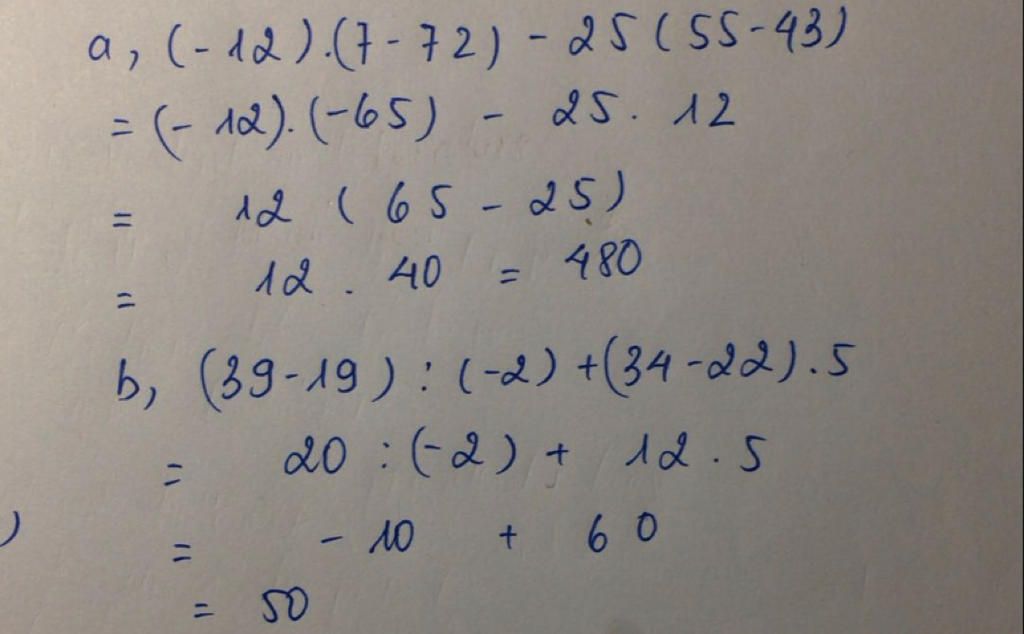 a, (-12).(7-72) - 25(55-43)
= (-12).(-65) - 25. 12
= 12 (65 - 25)
= 12 . 40 = 480
b, (39-19) : (-2) +(34-22).5
= 20 : (-2) + 12.5
)
= - 10 + 60
= 50